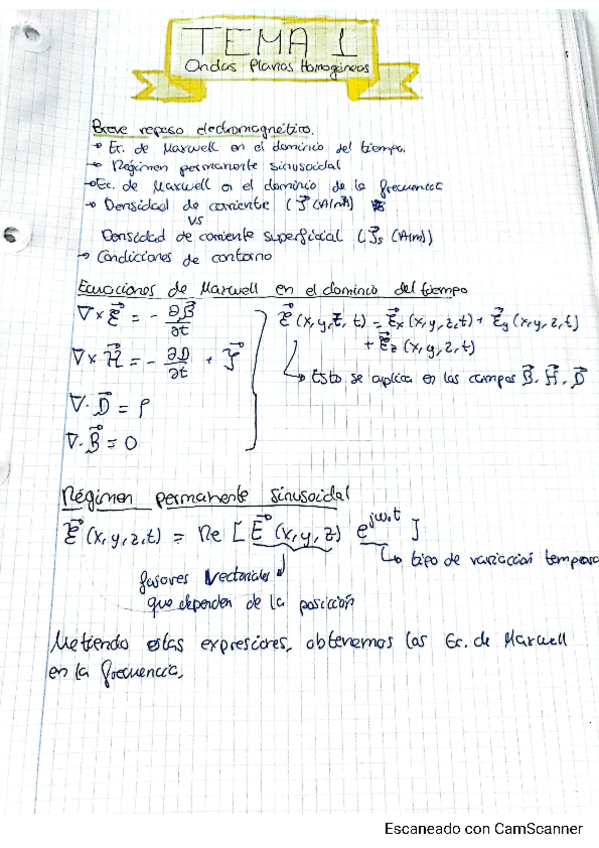 TEMA 1
Ondas Planas Homogéneas
Breve repaso electromagnético.
→ Ec. de Maxwell en el dominio del tiempo.
→ Régimen permanente sinusoidal
→ Ec. de Maxwell en el dominio de la frecuencia
→ Densidad de corriente (J⃗ (A/m²))
vs
Densidad de corriente superficial (J⃗s (A/m))
→ Condiciones de contorno
Ecuaciones de Maxwell en el dominio del tiempo
∇ × ℰ⃗ = - ∂B⃗/∂t
ℰ⃗ (x,y,z,t) = ℰ⃗x (x,y,z,t) + ℰ⃗y (x,y,z,t)
+ ℰ⃗z (x,y,z,t)
∇ × H⃗ = - ∂D/∂t + J⃗
↳ Esto se aplica en los campos B⃗, H⃗, D⃗
∇ · D⃗ = ρ
∇ · B⃗ = 0
Régimen permanente sinusoidal
ℰ⃗ (x,y,z,t) = Re [E⃗ (x,y,z) e^jω₀t]
↳ tipo de variación tempora
fasores vectoriales
que dependen de la posición
Metiendo estas expresiones, obtenemos las Ec. de Maxwell
en la frecuencia.
Escaneado con CamScanner